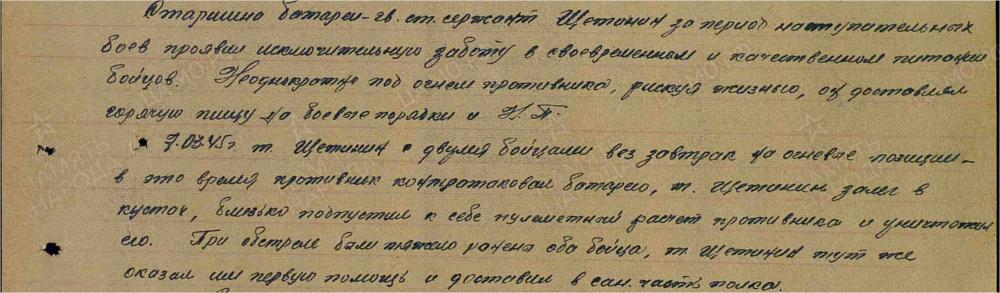 Старшина батареи - гв. ст. сержант Щетинин за период наступательных
боев проявил исключительную заботу в своевременном и качественном питании
бойцов. Неоднократно под огнем противника, рискуя жизнью, он доставлял
горячую пищу на боевые порядки и Н.П.
7.03.45г. т. Щетинин с двумя бойцами вез завтрак на огневые позиции -
в это время противник контратаковал батарею, т. Щетинин залег в
кустах, близко подпустил к себе пулеметный расчет противника и уничтожил
его. При обстреле были тяжело ранены оба бойца, т. Щетинин тут же
оказал им первую помощь и доставил в сан. часть полка.